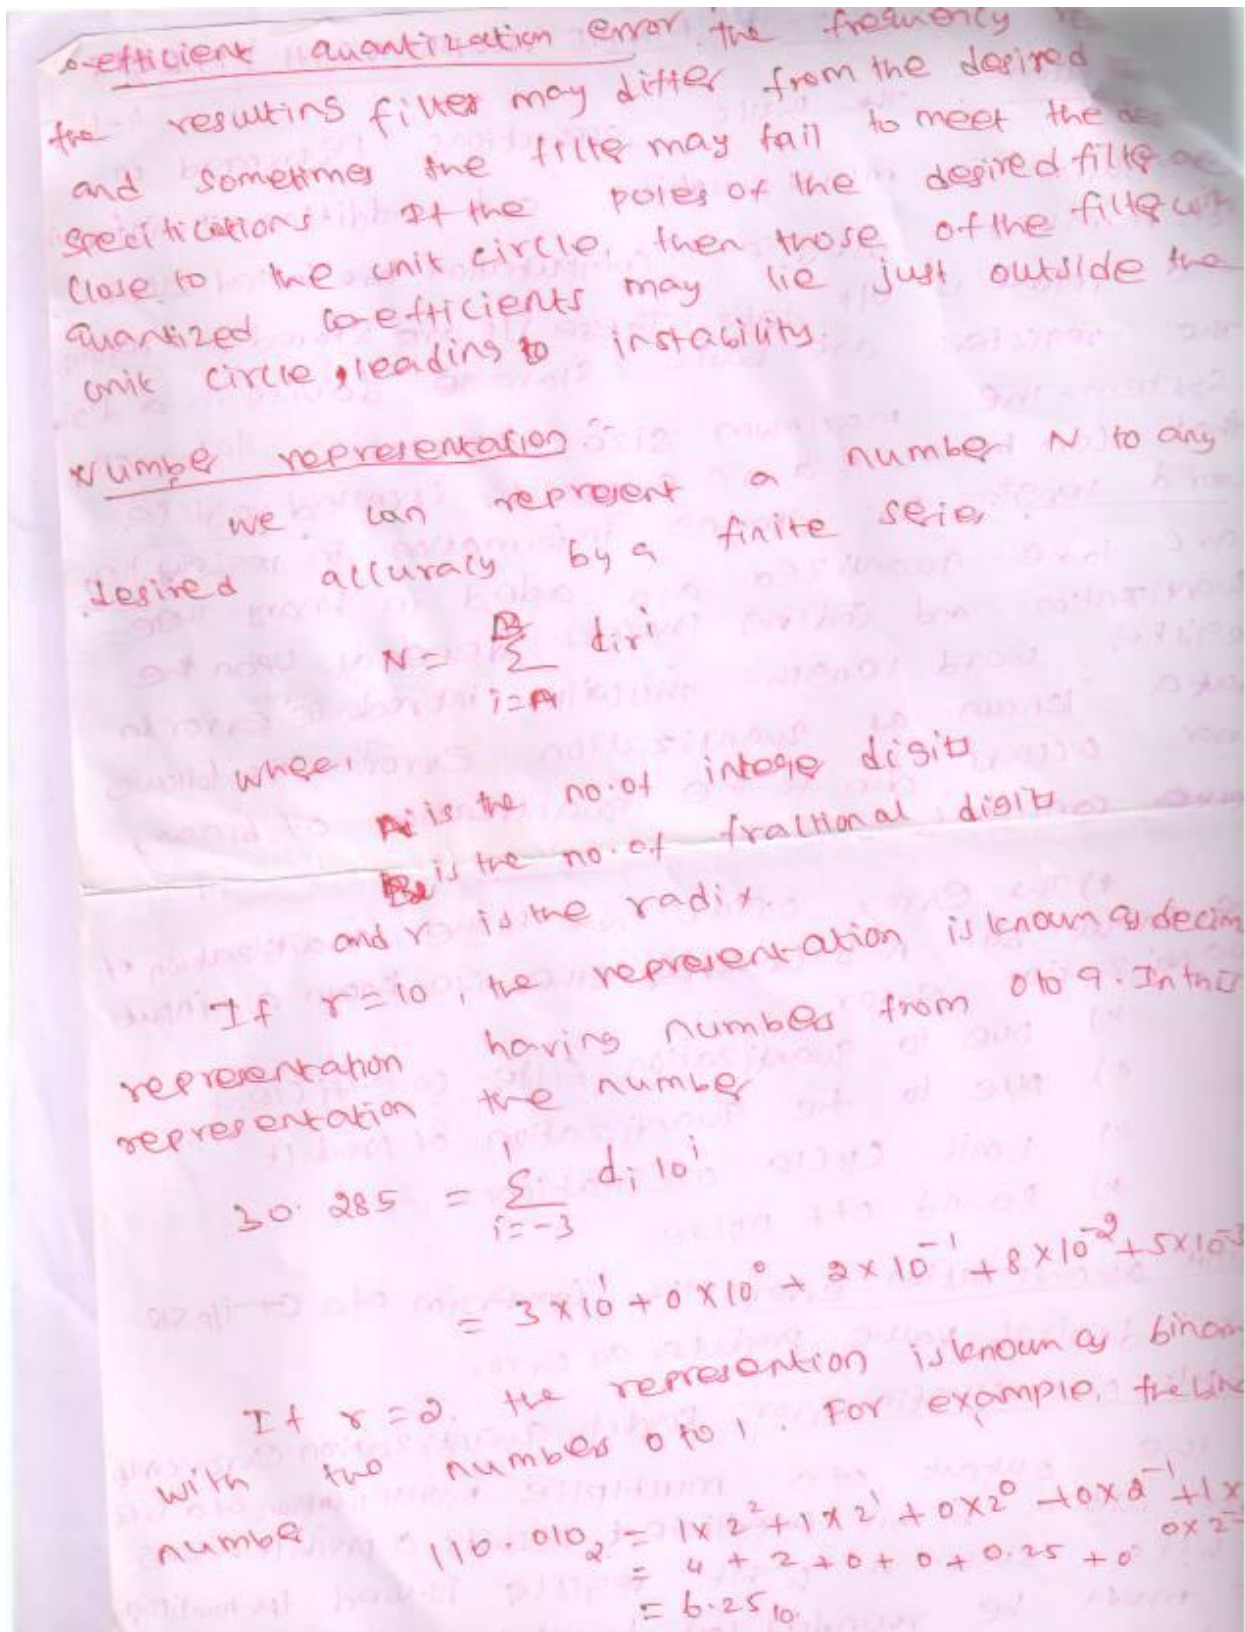 co-efficient quantization error the frequency re
the resulting filter may differ from the desired
and sometimes the filter may fail to meet the des
specifications If the poles of the desired filter are
close to the unit circle, then those of the filter with
quantized co-efficients may lie just outside the
unit circle, leading to instability.
Number representation
we can represent a number N to any
desired accuracy by a finite series
N = Σ_{i=A}^{B} d_i r^i
where,
A is the no. of integer digits
B is the no. of fractional digits
and r is the radix.
If r = 10, the representation is known as decim
representation having numbers from 0 to 9. In this
representation the number
30.285 = Σ_{i=-3}^{1} d_i 10^i
= 3×10^1 + 0×10^0 + 2×10^-1 + 8×10^-2 + 5×10^-3
If r = 2. the represention is known as binar
with two numbers 0 to 1. For example, the bina
number 110.010_2 = 1×2^2 + 1×2^1 + 0×2^0 + 0×2^-1 + 1×
0×2^-
= 4 + 2 + 0 + 0 + 0.25 + 0
= 6.25_10.